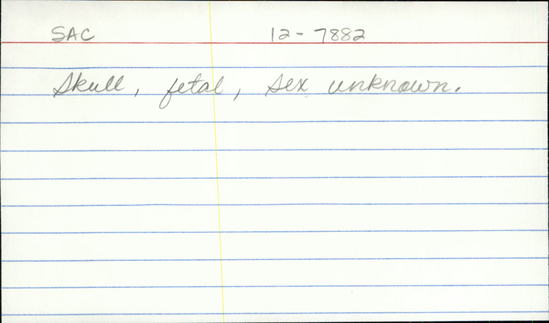 SAC 12-7882
Skull, fetal, sex unknown.